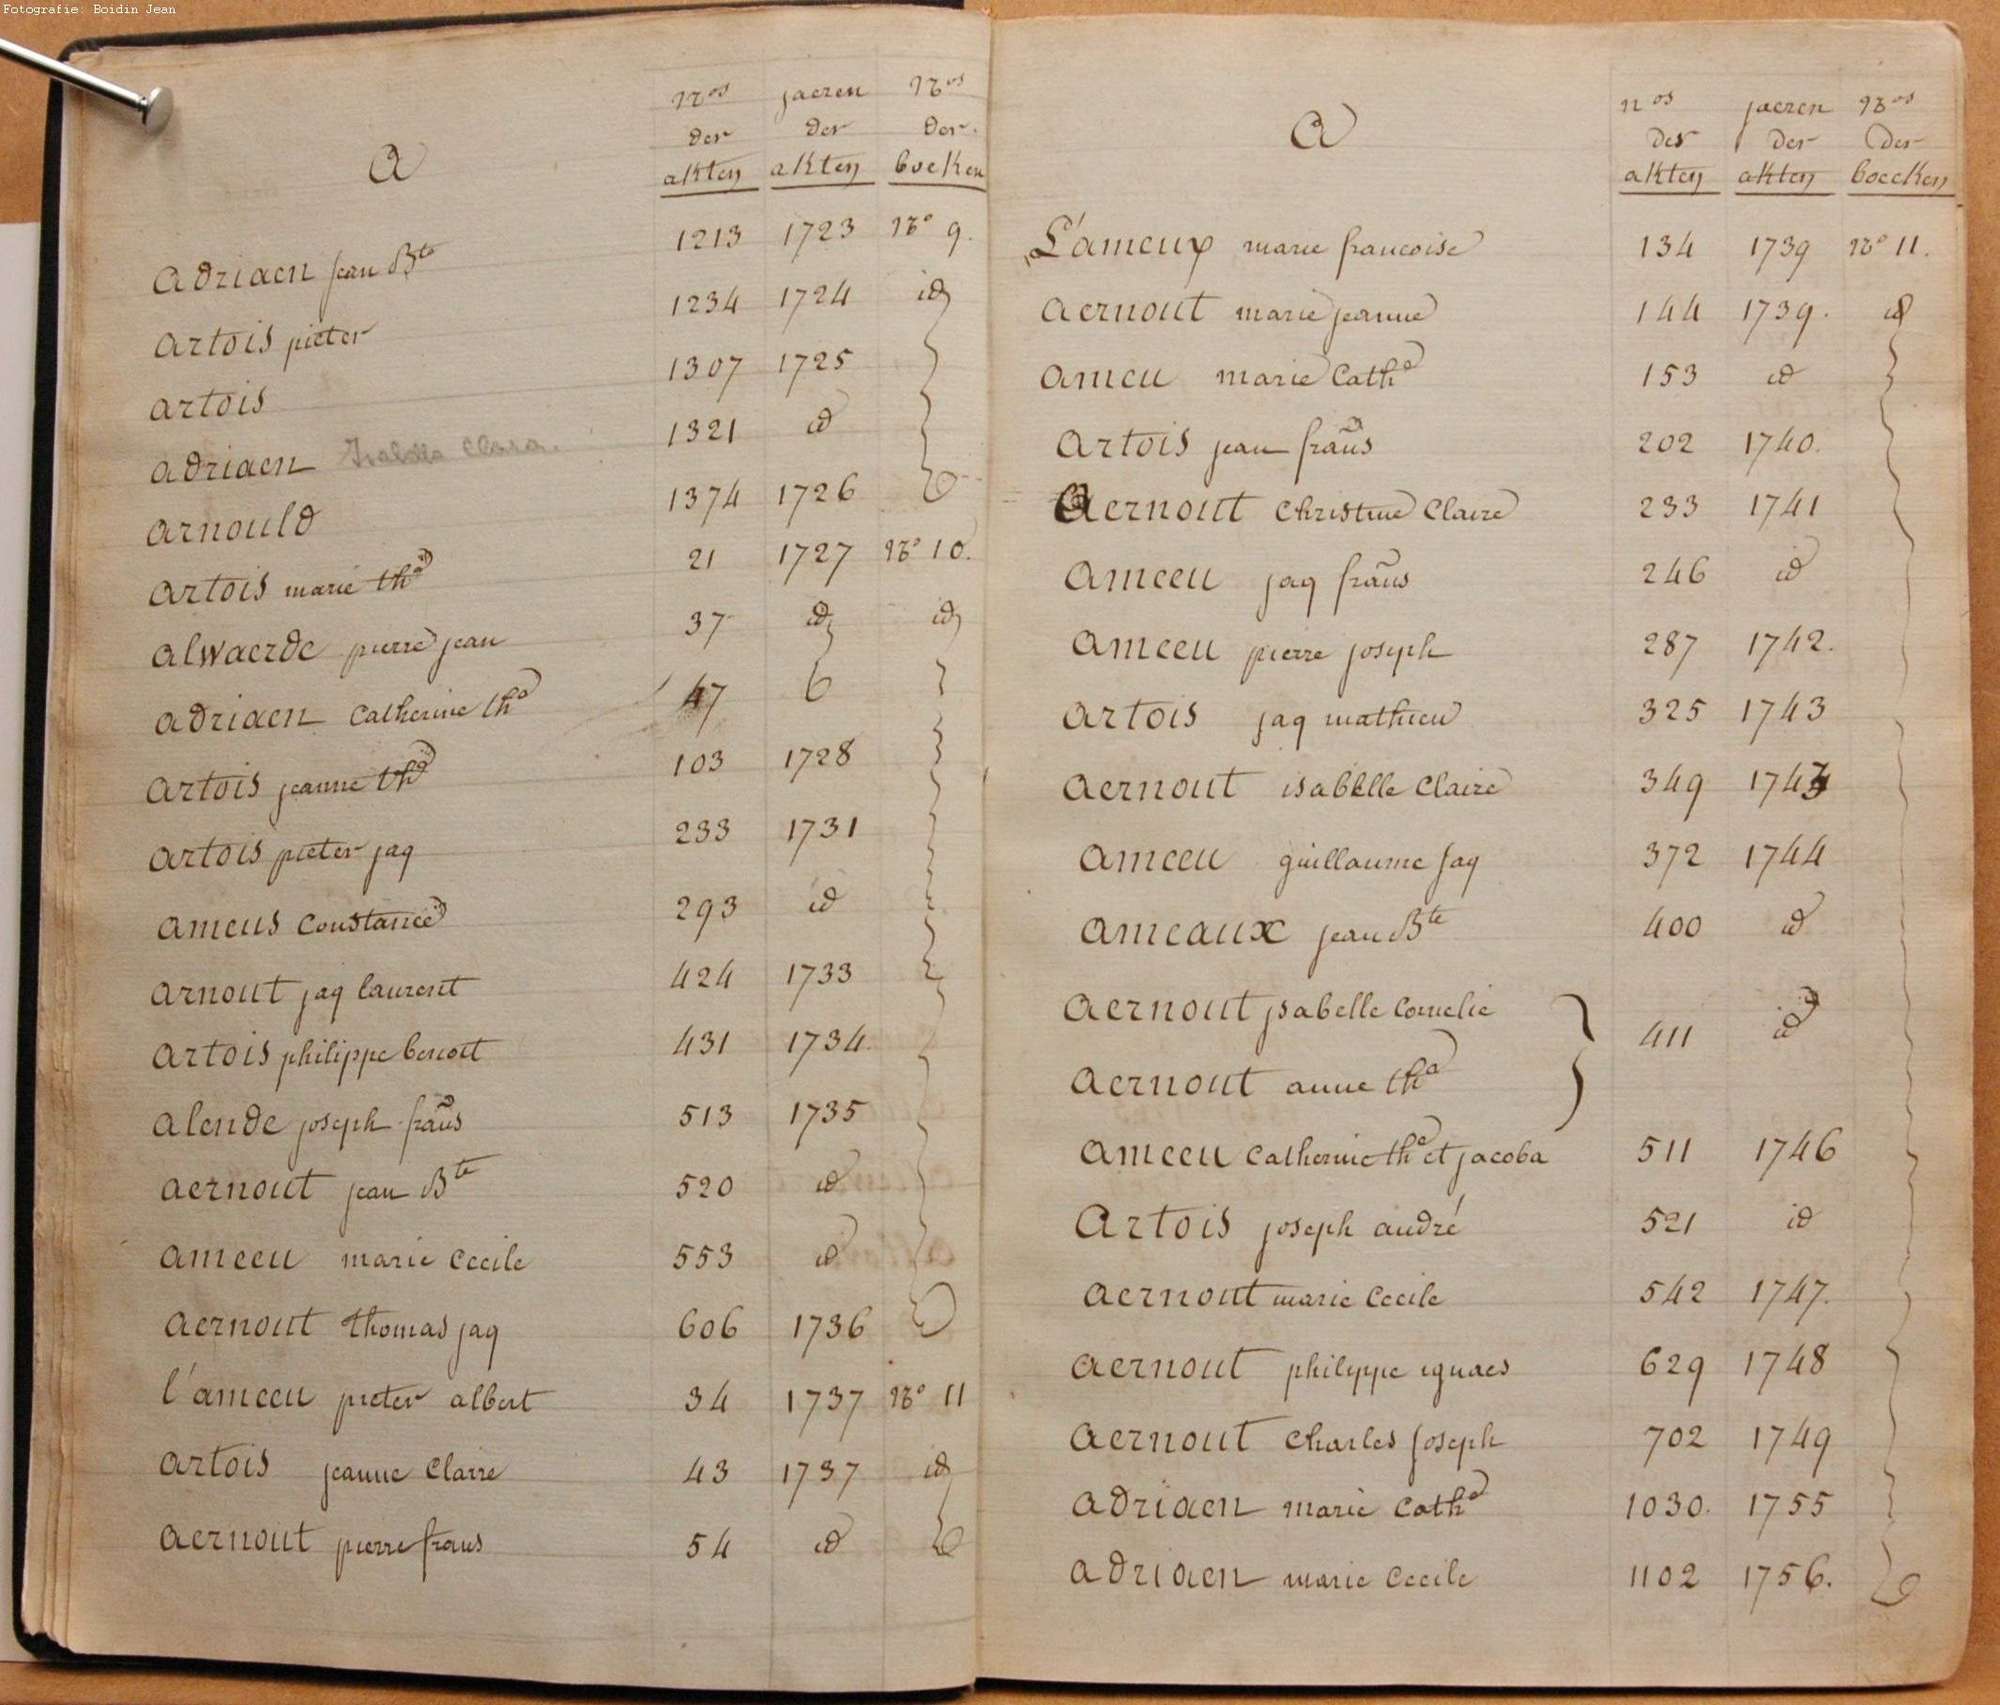 Fotografie: Boidin Jean
A
Nos jaeren Nos
der der der
akten akten boeken
Adriaen jean Bte 1213 1723 No 9.
Artois pieter 1234 1724 id
Artois 1307 1725
Adriaen Isabella Clara. 1321 id
Arnould 1374 1726
Artois marie tha 21 1727 No 10.
Alwaerde pierre jean 37 id id
Adriaen Catherine tha 47
Artois jeanne tha 103 1728
Artois pieter jaq 233 1731
Ameus Constance 293 id
Arnout jaq laurent 424 1733
Artois philippe benoit 431 1734.
Alende joseph frans 513 1735
Aernout jean Bte 520 id
Ameeu marie Cecile 553 id
Aernout thomas jaq 606 1736
l'ameeu pieter albert 34 1737 No 11
Artois jeanne Claire 43 1737 id
Aernout pierre frans 54 id
A
nos jaeren Nos
der der der
akten akten boecken
L'ameux marie francoise 134 1739 No 11.
Aernout marie jeanne 144 1739. id
Ameu marie Catha 153 id
Artois jean frans 202 1740.
Aernout Christine Claire 233 1741
Ameeu jaq frans 246 id
Ameeu pierre joseph 287 1742.
Artois jaq mathieu 325 1743
Aernout isabelle Claire 349 1743
Ameeu guillaume jaq 372 1744
Ameaux jean Bte 400 id
Aernout jsabelle Cornelie
411 id
Aernout anne tha
Ameeu Catherine tha et jacoba 511 1746
Artois joseph andré 521 id
Aernout marie Cecile 542 1747.
Aernout philippe ignaes 629 1748
Aernout Charles joseph 702 1749
Adriaen marie Catha 1030. 1755
Adriaen marie Cecile 1102 1756.